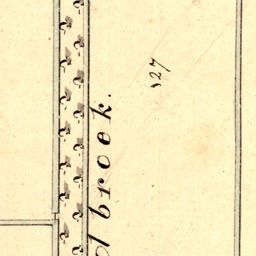 lbroek.
827